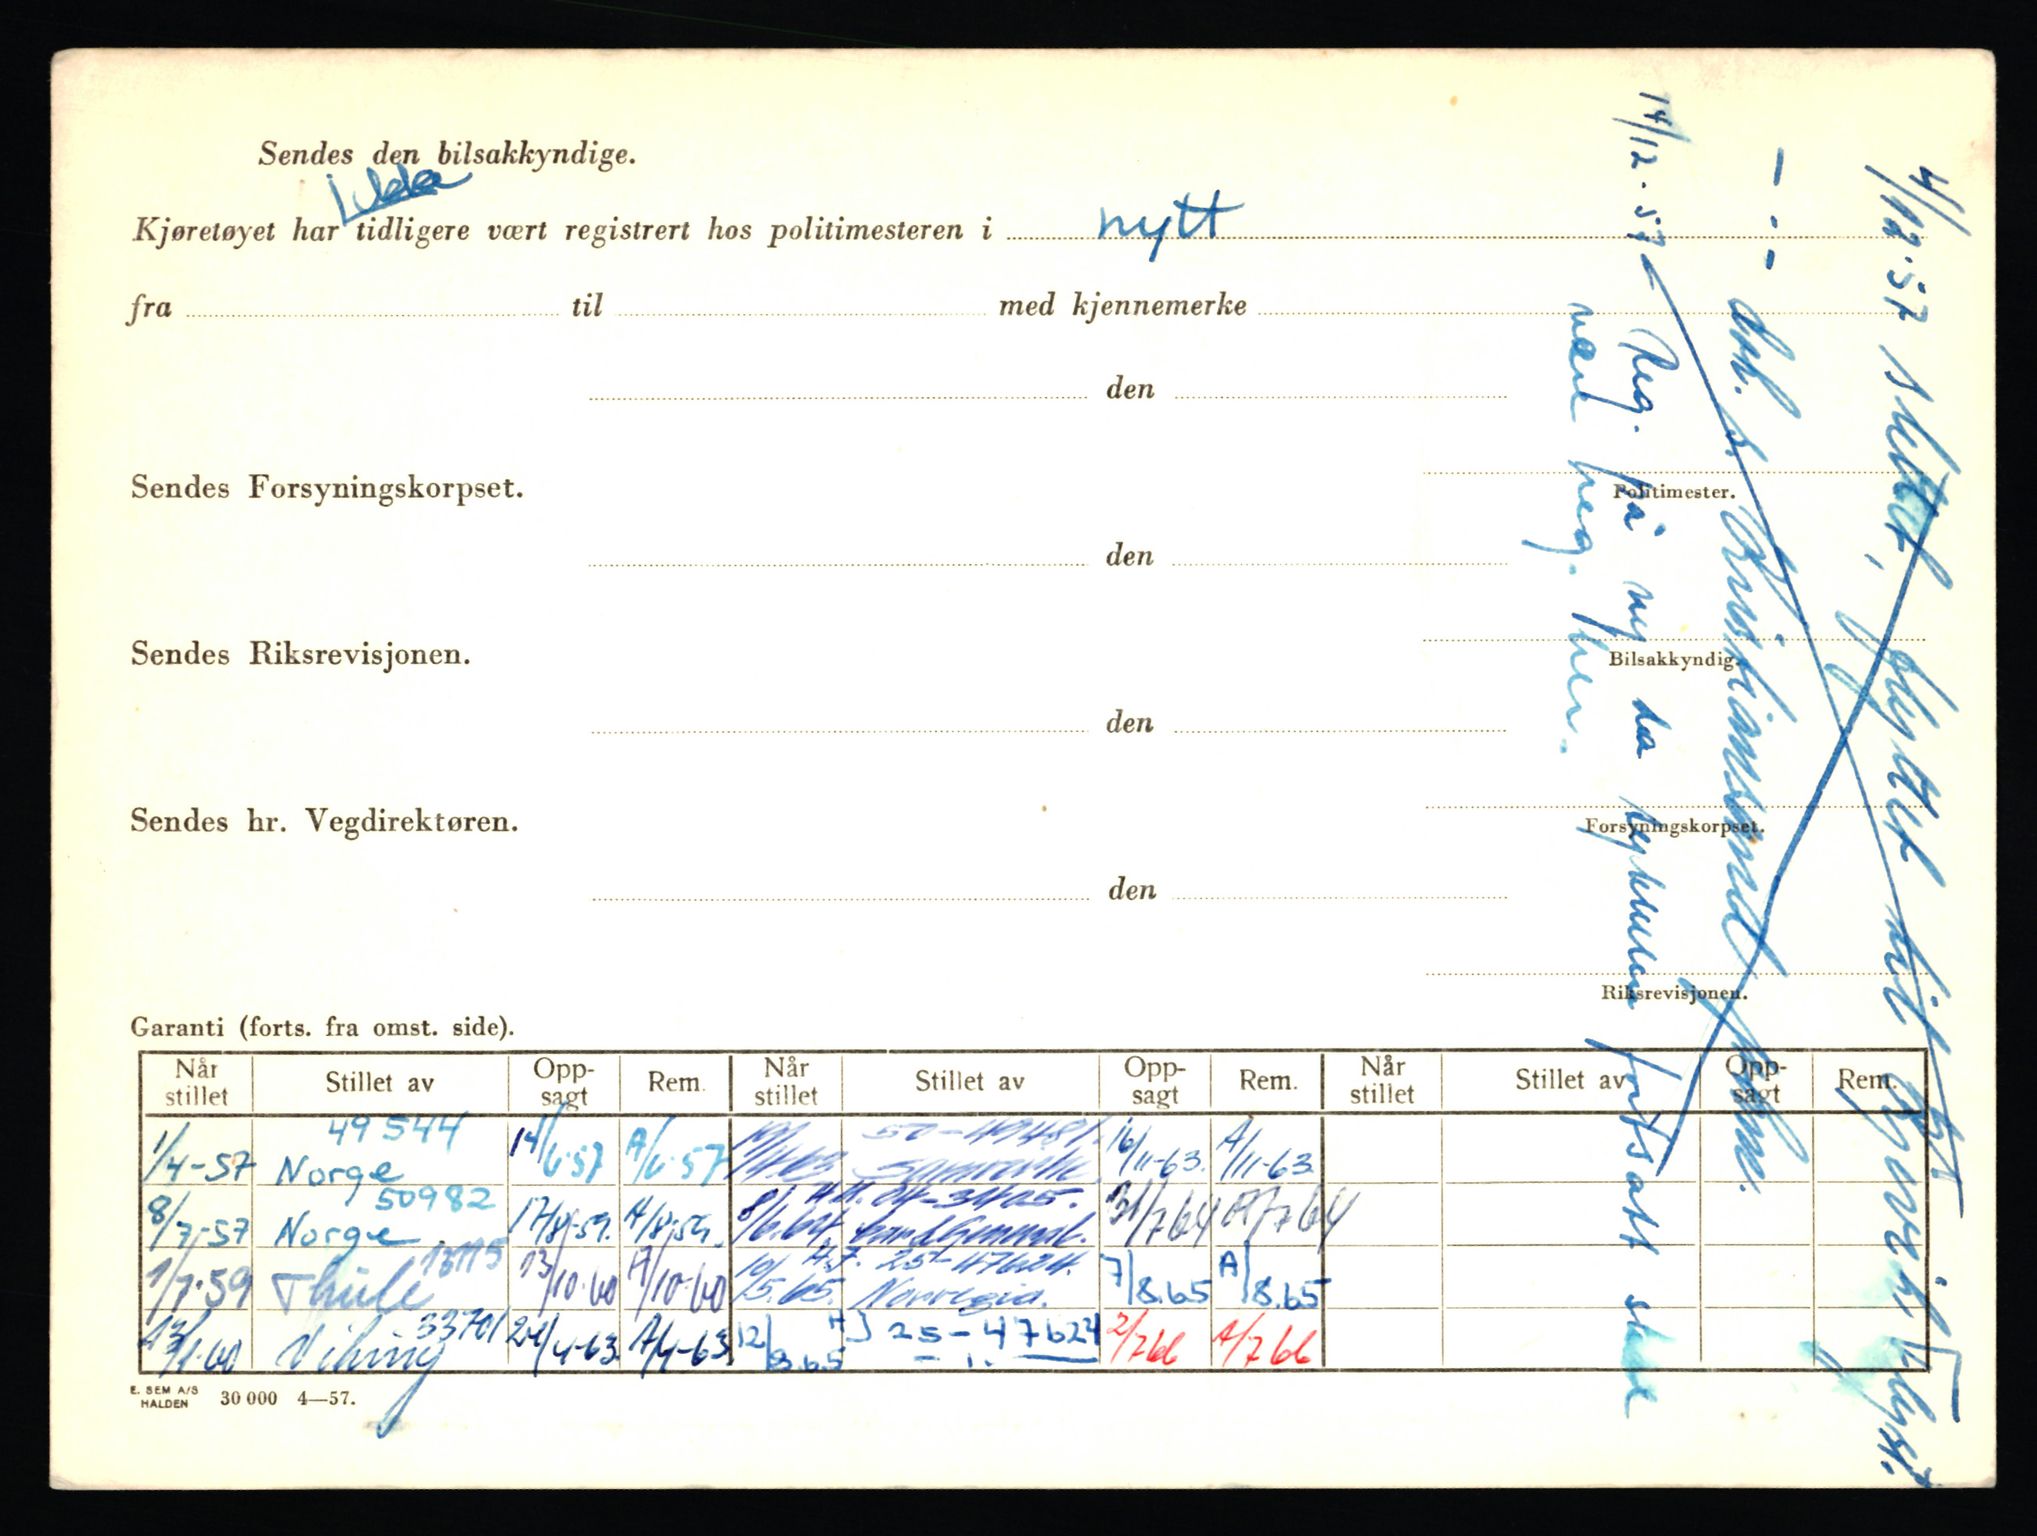 Sendes den bilsakkyndige.
ikke
Kjøretøyet har tidligere vært registrert hos politimesteren i nytt
fra til med kjennemerke
den
Politimester.
Sendes Forsyningskorpset.
den
Bilsakkyndig.
Sendes Riksrevisjonen.
den
Forsyningskorpset.
Sendes hr. Vegdirektøren.
den
Riksrevisjonen.
4/12.57 slettet, flyttet til Gjøvik polist.
— . - dvk. s. Kristiansund
14/12.57 Reg. på ny da fortsatt skal
være reg. her.
Garanti (forts. fra omst. side).
Når stillet Stillet av Opp-sagt Rem. Når stillet Stillet av Opp-sagt Rem. Når stillet Stillet av Opp-sagt Rem.
1/4-57 49544 Norge 14/6.57 A/6.57 50-49481. 16/11-63. A/11-63
8/7-57 50982 Norge 17/8.59. A/8.59. 8/6.64 31/7 64 A/7 64
1/7.59 Thule 13/10.60 A/10.60 10/5.65. A.J. 25-47624. Norvegia. 7/8.65 A/8.65
23/9.60 33701 Viking 24/4-63 A/4-63 12/8.65 25-47624 2/7 66 A/7 66
E. SEM A/S
HALDEN 30 000 4—57.